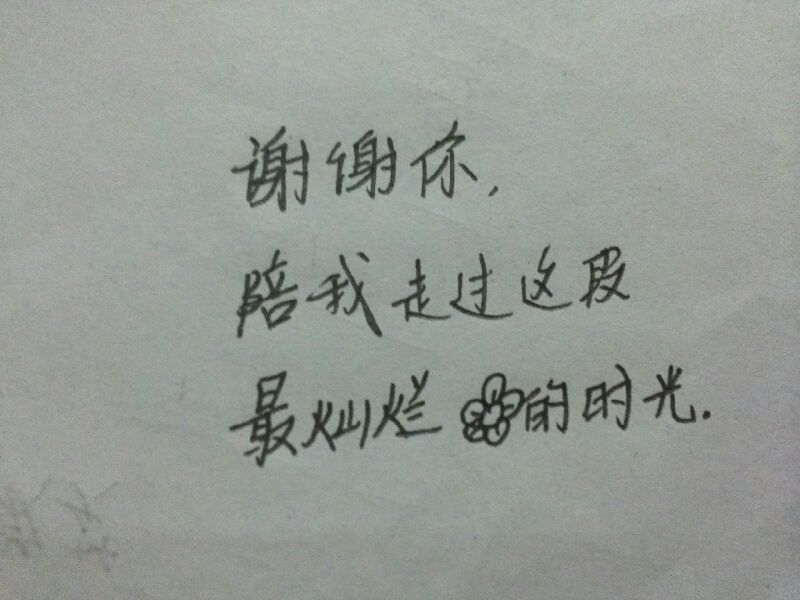 谢谢你,
陪我走过这段
最灿烂的时光.